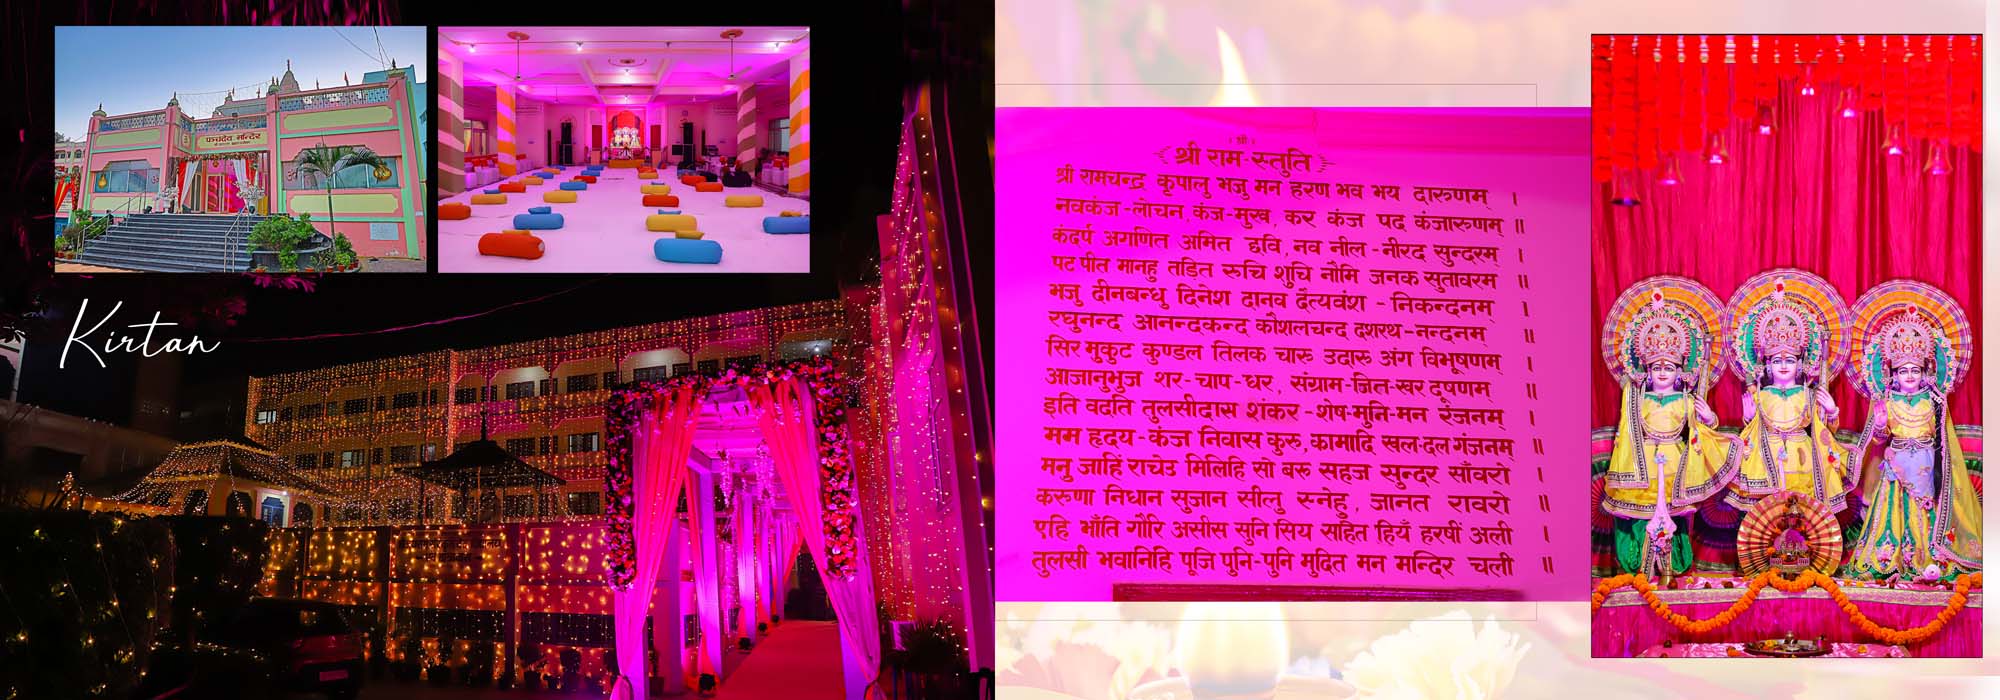 पञ्चदेव मन्दिर
Kirtan
। श्री ।
श्री राम-स्तुति
श्री रामचन्द्र कृपालु भजु मन हरण भव भय दारुणम् ।
नवकंज-लोचन, कंज-मुख, कर कंज पद कंजारुणम् ॥
कंदर्प अगणित अमित छवि, नव नील-नीरद सुन्दरम् ।
पट पीत मानहु तड़ित रुचि शुचि नौमि जनक सुतावरम ॥
भजु दीनबन्धु दिनेश दानव दैत्यवंश-निकन्दनम् ।
रघुनन्द आनन्दकन्द कौशलचन्द दशरथ-नन्दनम् ॥
सिर मुकुट कुण्डल तिलक चारु उदारु अंग विभूषणम् ।
आजानुभुज शर-चाप-धर, संग्राम-जित-खर दूषणम् ॥
इति वदति तुलसीदास शंकर-शेष-मुनि-मन रंजनम् ।
मम हृदय-कंज निवास कुरु, कामादि खल-दल गंजनम् ॥
मनु जाहिं राचेउ मिलिहि सो बरु सहज सुन्दर साँवरो ।
करुणा निधान सुजान सीलु स्नेहु, जानत रावरो ॥
एहि भाँति गौरि असीस सुनि सिय सहित हियँ हरषीं अली ।
तुलसी भवानिहि पूजि पुनि-पुनि मुदित मन मन्दिर चली ॥